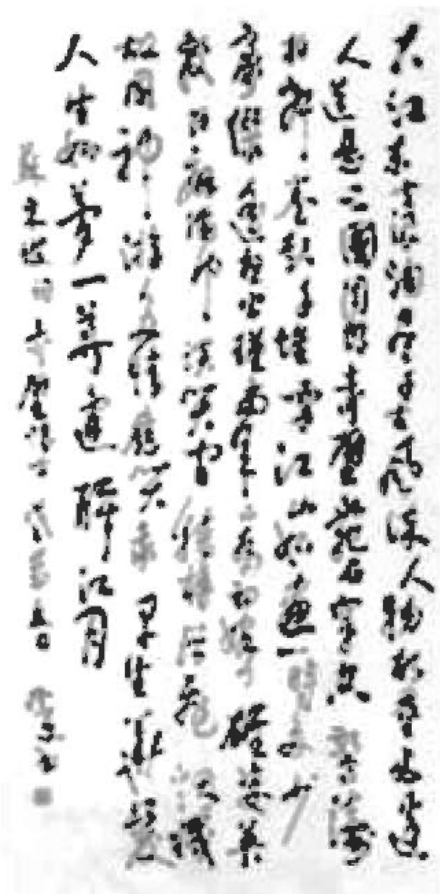 大江東去浪淘盡千古風流人物故壘西邊
人道是三國周郎赤壁亂石穿空驚濤
拍岸捲起千堆雪江山如畫一時多少
豪傑遙想公瑾當年小喬初嫁了雄姿英
發羽扇綸巾談笑間灰飛煙滅
故國神遊多情應笑我早生華髮
人生如夢一尊還酹江月
蘇東坡詞赤壁